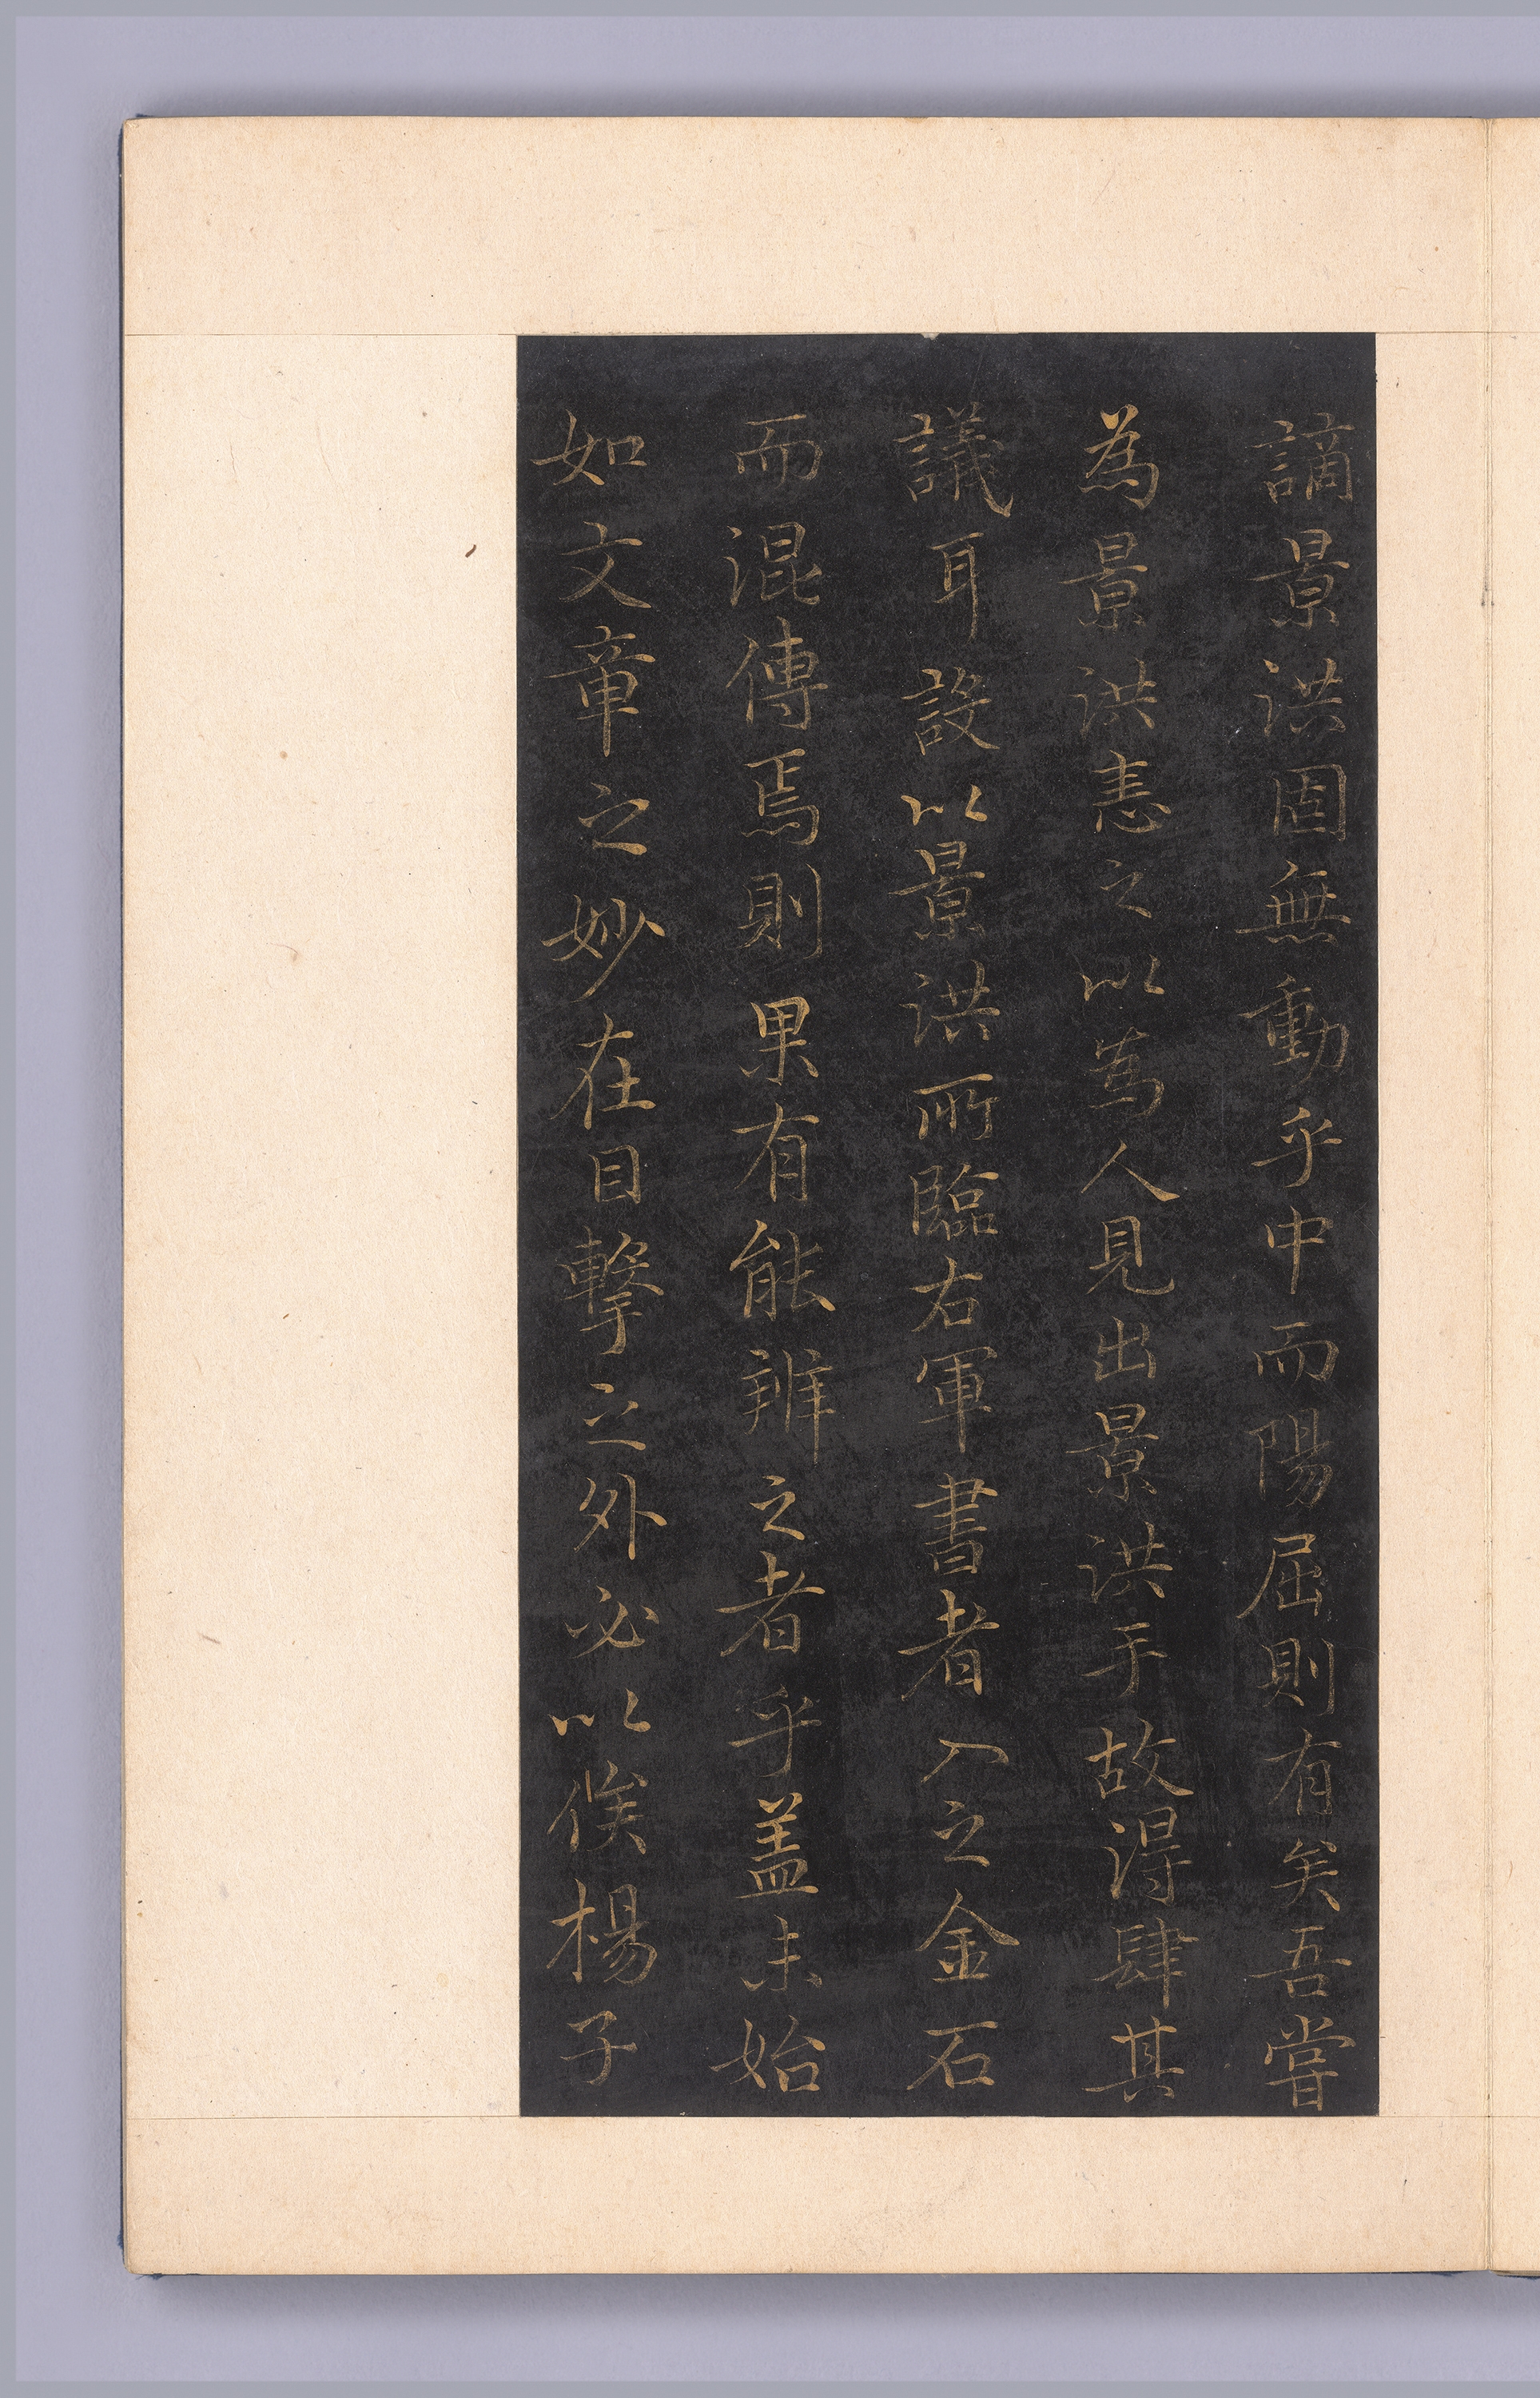 謫景洪固無動乎中而陽屈則有矣吾嘗
為景洪恚之以為人見出景洪手故得肆其
議耳設以景洪所臨右軍書者入之金石
而混傳焉則果有能辨之者乎盖未始
如文章之妙在目擊之外必以俟楊子